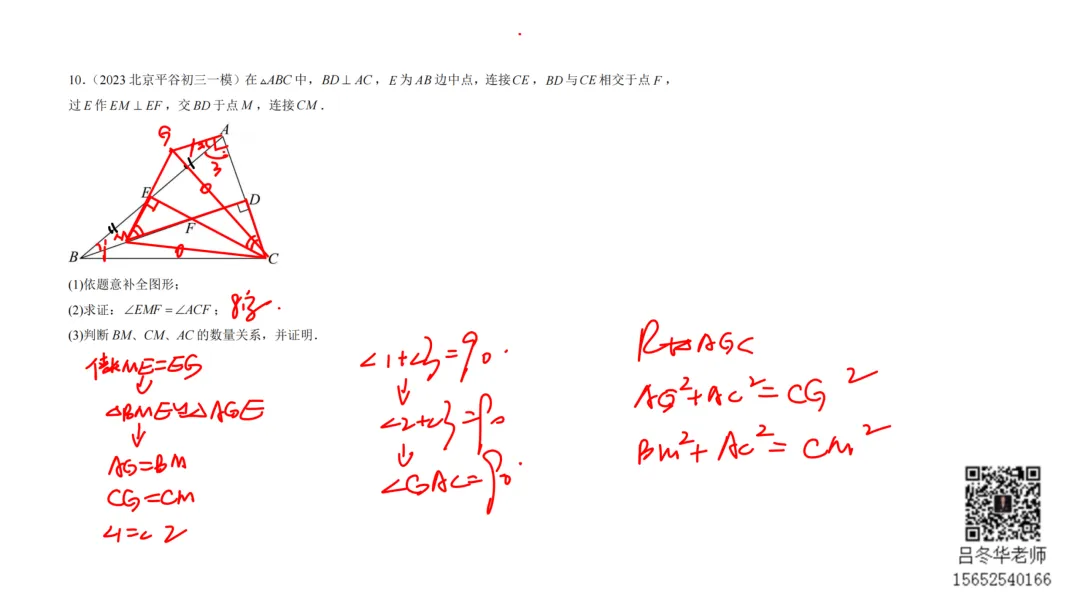 10.（2023 北京平谷初三一模）在△ABC 中，BD⊥AC，E 为 AB 边中点，连接CE，BD与CE相交于点F，
过E作EM⊥EF，交BD于点M，连接CM．
G
A
1 2
3
E
D
M
F
B
1
C
(1)依题意补全图形；
(2)求证：∠EMF=∠ACF；
8字.
(3)判断 BM、CM、AC的数量关系，并证明．
倍长ME=EG
↓
△BME≌△AGE
↓
AG=BM
CG=CM
∠1=∠2
∠1+∠3=90.
↓
∠2+∠3=90
↓
∠GAC=90.
Rt△AGC
AG²+AC²=CG²
BM²+AC²=CM²
吕冬华老师
15652540166